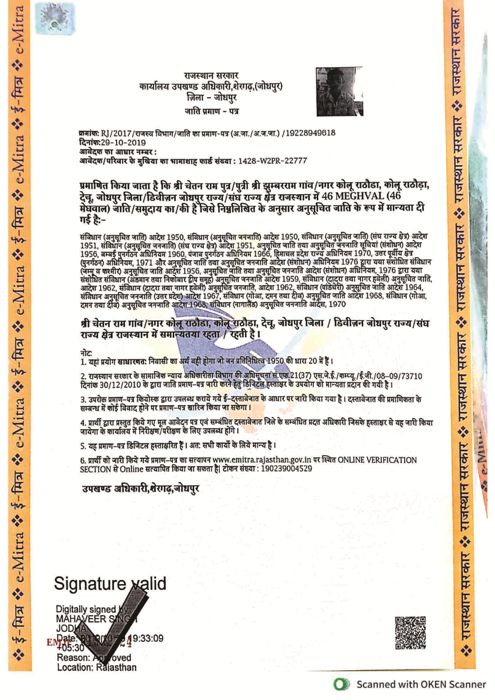 राजस्थान सरकार
कार्यालय उपखण्ड अधिकारी,शेरगढ़,(जोधपुर)
ज़िला – जोधपुर
जाति प्रमाण – पत्र
क्रमांक: RJ/2017/राजस्व विभाग/जाति का प्रमाण-पत्र (अ.जा./अ.ज.जा.) /19228949618
दिनांक:29-10-2019
आवेदक का आधार नम्बर :
आवेदक/परिवार के मुखिया का भामाशाह कार्ड संख्या : 1428-W2PR-22777
प्रमाणित किया जाता है कि श्री चेतन राम पुत्र/पुत्री श्री झुम्बरराम गांव/नगर कोलू राठौडा, कोलू राठौड़ा,
देचू, जोधपुर जिला/डिवीज़न जोधपुर राज्य/संघ राज्य क्षेत्र राजस्थान में 46 MEGHVAL (46
मेघवाल) जाति/समुदाय का/की है जिसे निम्नलिखित के अनुसार अनुसूचित जाति के रूप में मान्यता दी
गई है:-
संविधान (अनुसूचित जाति) आदेश 1950, संविधान (अनुसूचित जनजाति) आदेश 1950, संविधान (अनुसूचित जाति) (संघ राज्य क्षेत्र) आदेश
1951, संविधान (अनुसूचित जनजाति) (संघ राज्य क्षेत्र) आदेश 1951, अनुसूचित जाति तथा अनुसूचित जनजाति सूचियां (संशोधन) आदेश
1956, बम्बई पुनर्गठन अधिनियम 1960, पंजाब पुनर्गठन अधिनियम 1966, हिमाचल प्रदेश राज्य अधिनियम 1970, उत्तर पूर्वीय क्षेत्र
(पुनर्गठन) अधिनियम, 1971 और अनुसूचित जाति तथा अनुसूचित जनजाति आदेश (संशोधन) अधिनियम 1976 द्वारा यथा संशोधित संविधान
(जम्मू व कश्मीर) अनुसूचित जाति आदेश 1956, अनुसूचित जाति तथा अनुसूचित जनजाति आदेश (संशोधन) अधिनियम, 1976 द्वारा यथा
संशोधित संविधान (अंडमान तथा निकोबार द्वीप समूह) अनुसूचित जनजाति आदेश 1959, संविधान (दादरा तथा नागर हवेली) अनुसूचित जाति,
आदेश 1962, संविधान (दादरा तथा नागर हवेली) अनुसूचित जनजाति, आदेश 1962, संविधान (पांडिचेरी) अनुसूचित जाति आदेश 1964,
संविधान अनुसूचित जनजाति (उत्तर प्रदेश) आदेश 1967, संविधान (गोआ, दमन तथा दीव) अनुसूचित जाति आदेश 1968, संविधान (गोआ,
दमन तथा दीव) अनुसूचित जनजाति आदेश, 1968, संविधान (नागालैंड) अनुसूचित जनजाति आदेश, 1970
श्री चेतन राम गांव/नगर कोलू राठौडा, कोलू राठौड़ा, देचू, जोधपुर जिला / डिवीज़न जोधपुर राज्य/संघ
राज्य क्षेत्र राजस्थान में सामान्यतया रहता / रहती है ।
नोट:
1. यहां प्रयोग साधारणत: निवासी का अर्थ वही होगा जो जन प्रतिनिधित्व 1950 की धारा 20 में हैं ।
2. राजस्थान सरकार के सामाजिक न्याय अधिकारीता विभाग की अधिसूचना सं.एफ.21(37) एस.जे.ई./कम्प्यू./ई.जी./08-09/73710
दिनांक 30/12/2010 के द्वारा जाति प्रमाण-पत्र जारी करने हेतु डिजिटल हस्ताक्षर के उपयोग को मान्यता प्रदान की गयी है ।
3. उपरोक्त प्रमाण-पत्र कियोस्क द्वारा उपलब्ध कराये गये ई-दस्तावेजात के आधार पर जारी किया गया है । दस्तावेजात की प्रमाणिकता के
सम्बन्ध में कोई विवाद होने पर प्रमाण-पत्र खारिज किया जा सकेगा ।
4. प्रार्थी द्वारा प्रस्तुत किये गए मूल आवेदन पत्र एवं सम्बंधित दस्तावेजात जिले के सम्बंधित प्रदत अधिकारी जिसके हस्ताक्षर से यह जारी किया
जायेगा के कार्यालय में निरीक्षण/परीक्षण के लिए उपलब्ध होंगे ।
5. यह प्रमाण-पत्र डिजिटल हस्ताक्षरित हैं । अत: सभी कार्यों के लिये मान्य है ।
6. प्रार्थी को जारी किये गये प्रमाण-पत्र का सत्यापन www.emitra.rajasthan.gov.in पर स्थित ONLINE VERIFICATION
SECTION से Online सत्यापित किया जा सकता है| टोकन संख्या : 190239004529
उपखण्ड अधिकारी,शेरगढ़,जोधपुर
Signature valid
Digitally signed by
MAHAVEER SINGH
JODHA
19:33:09
+05:30
Reason: Approved
Location: Rajasthan
ई-मित्र ❖ e-Mitra ❖ ई-मित्र ❖ e-Mitra ❖ ई-मित्र ❖ e-Mitra ❖ ई-मित्र ❖ e-Mitra ❖ ई-मित्र ❖ e-Mitra
राजस्थान सरकार ❖ राजस्थान सरकार ❖ राजस्थान सरकार ❖ राजस्थान सरकार ❖ राजस्थान सरकार ❖ राजस्थान सरकार
Scanned with OKEN Scanner